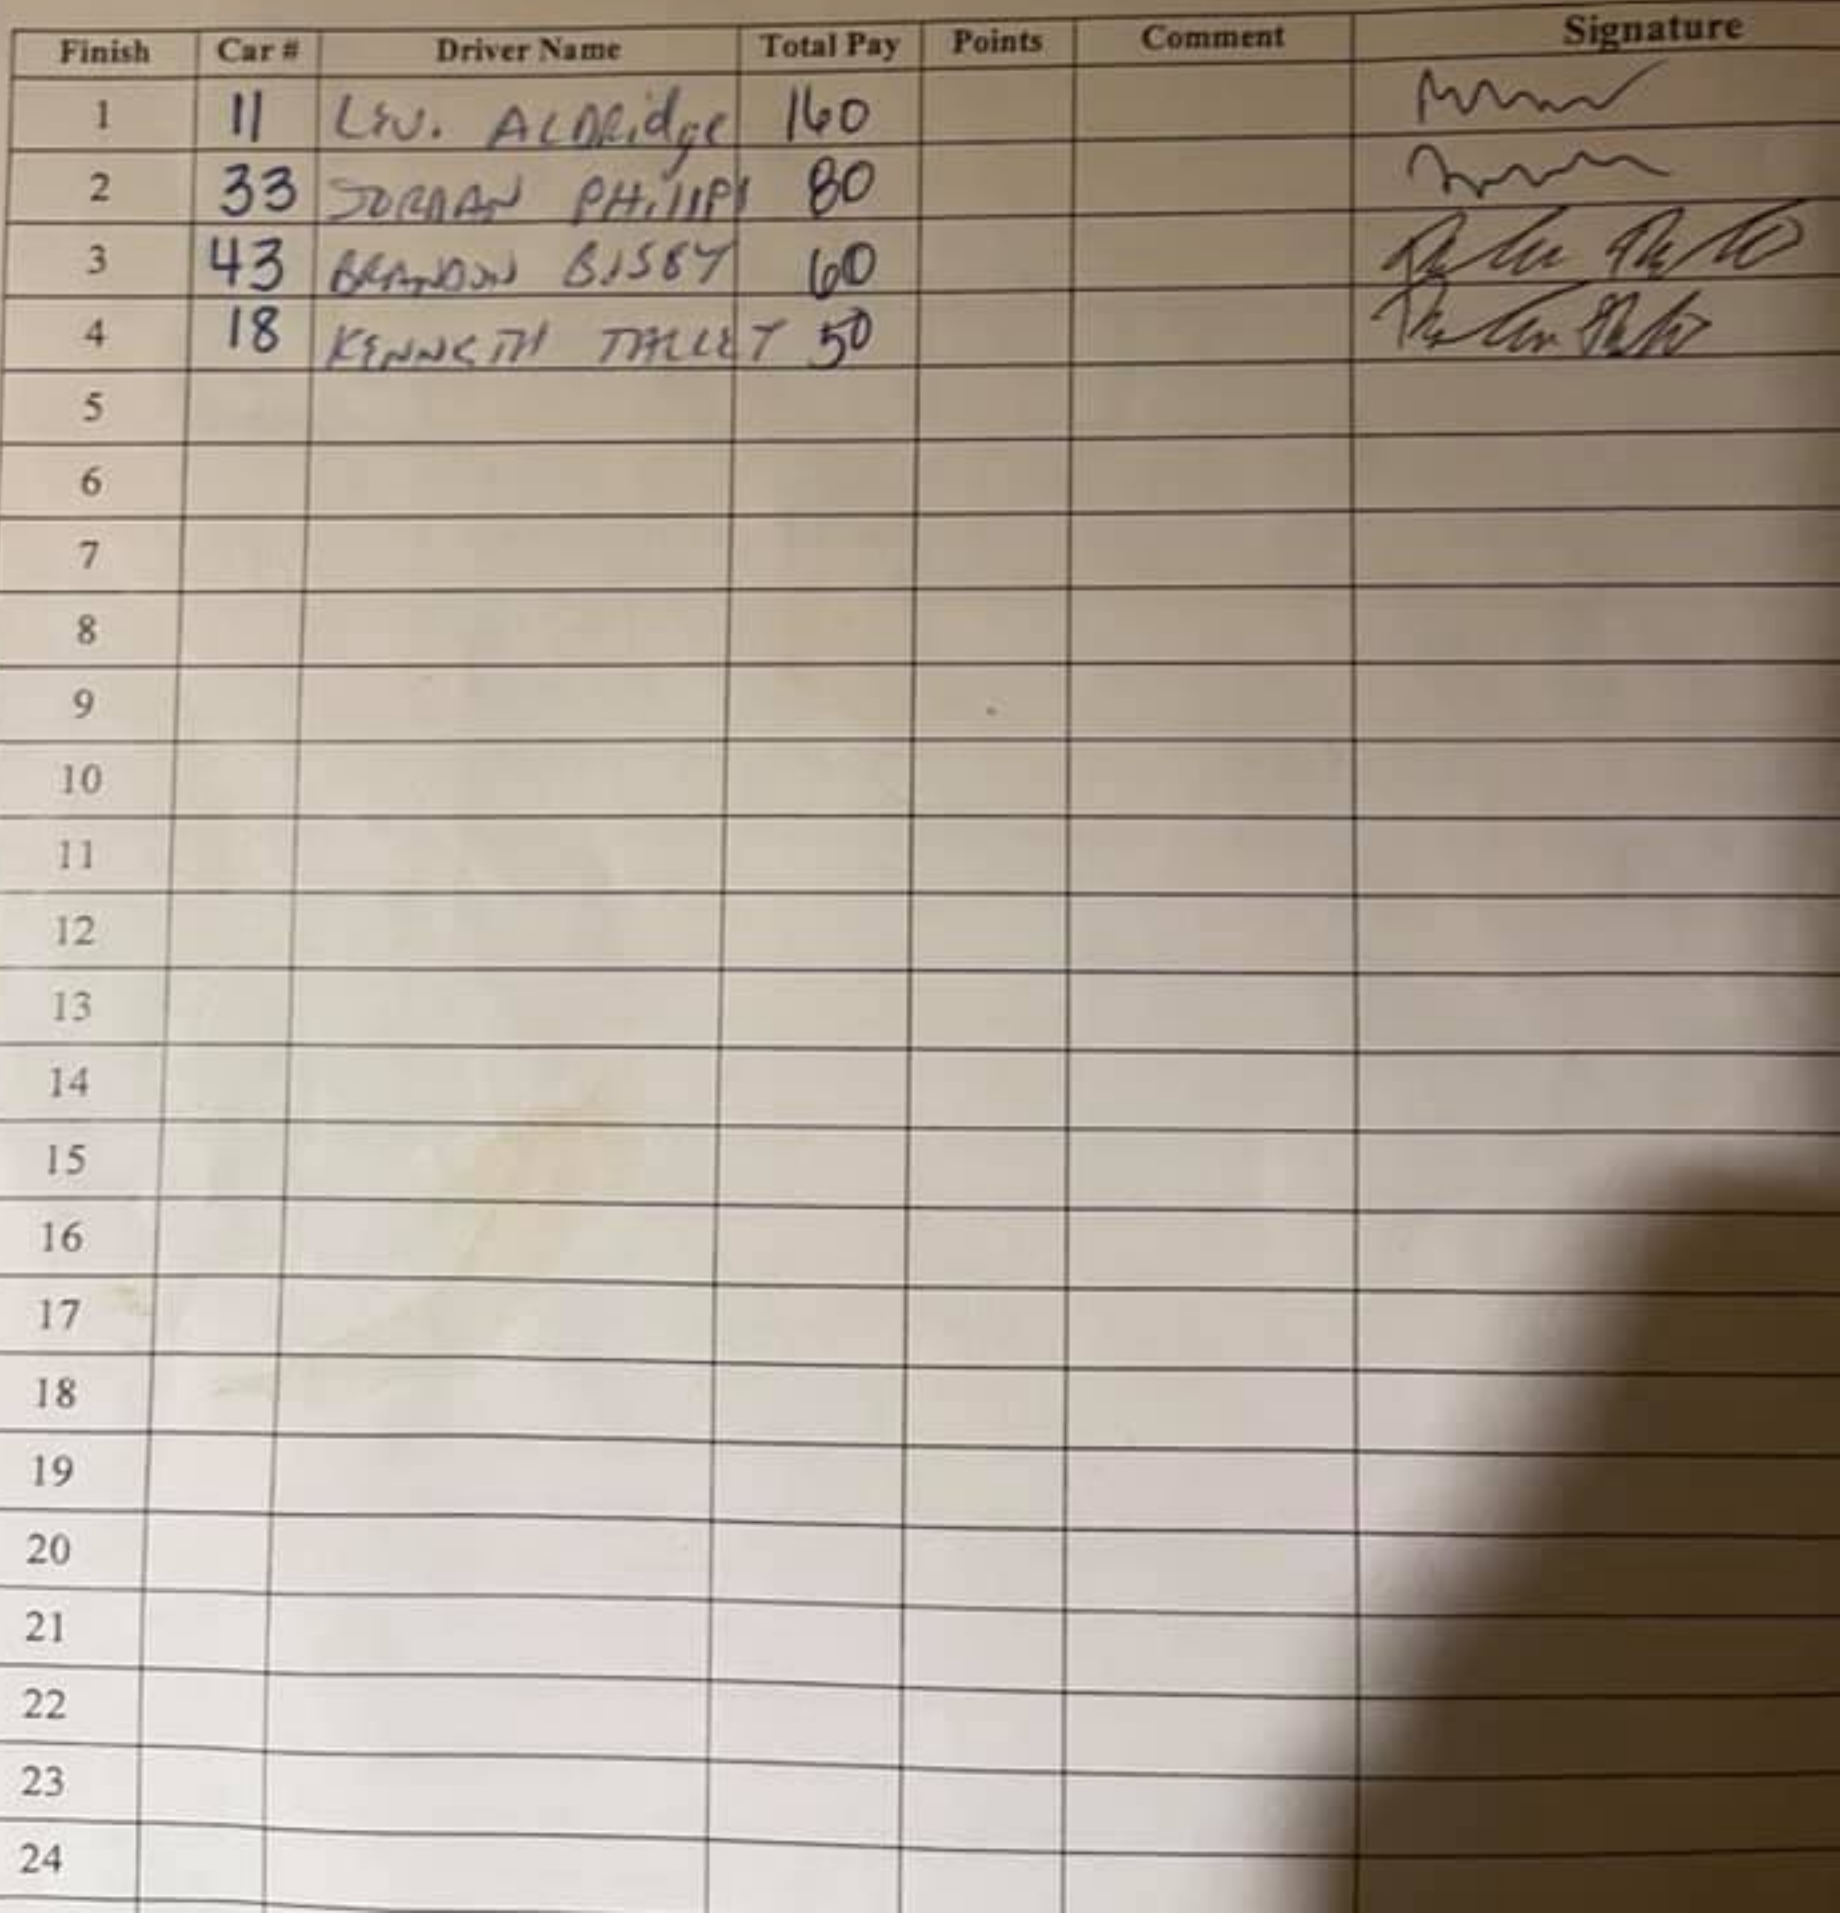 Finish Car # Driver Name Total Pay Points Comment Signature
1 11 Liv. ALDRidge 160
2 33 JORDAN PHILLIPS 80
3 43 BRANDON BISBY 60
4 18 KENNETH TALLEY 50
5
6
7
8
9
10
11
12
13
14
15
16
17
18
19
20
21
22
23
24